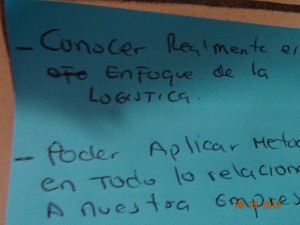 - Conocer Realmente el
Enfoque de la
Logistica.
- Poder Aplicar Metod
en Todo lo relacion
A nuestra Empres